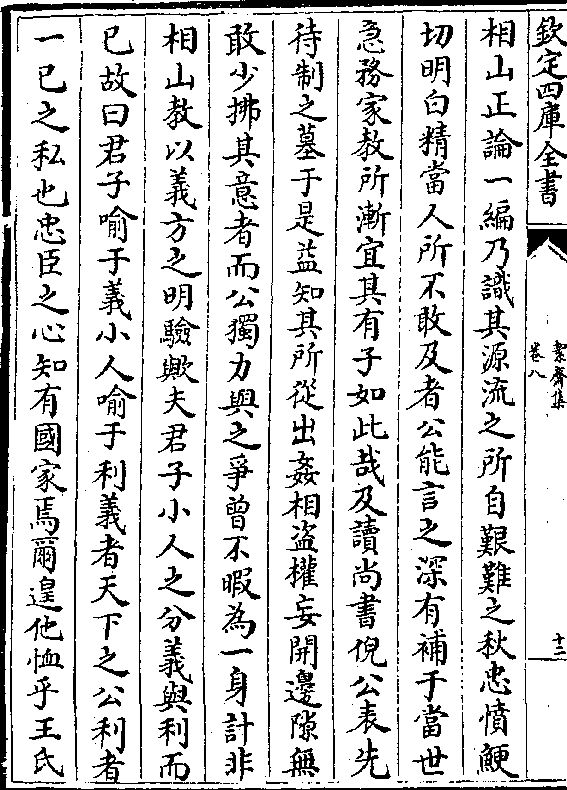 欽定四庫全書
絜齋集
卷八
十二
相山正論一編乃識其源流之所自艱難之秋忠憤鯁
切明白精當人所不敢及者公能言之深有補于當世
急務家教所漸宜其有子如此哉及讀尚書倪公表先
待制之墓于是益知其所從出姦相盜權妄開邊隙無
敢少拂其意者而公獨力與之爭曾不暇為一身計非
相山教以義方之明驗歟夫君子小人之分義與利而
已故曰君子喻于義小人喻于利義者天下之公利者
一已之私也忠臣之心知有國家焉爾遑他恤乎王氏